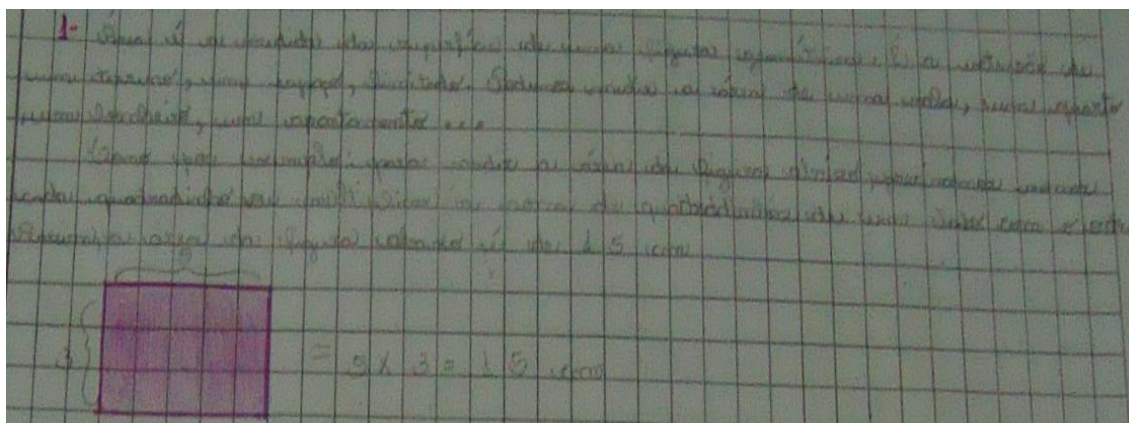 1- Área é a medida da superfície de uma figura geométrica. É a
um terreno, um espaço, limitado. Podemos medir a área de uma sala, num quarto
num banheiro, um apartamento ...
Como por exemplo: para saber a área da figura abaixo, podemos
cada quadradinho ou multiplicar o de quadradinhos de um lado com o outro
a área da figura abaixo é de 15 cm
5
3 = 5 x 3 = 15 cm